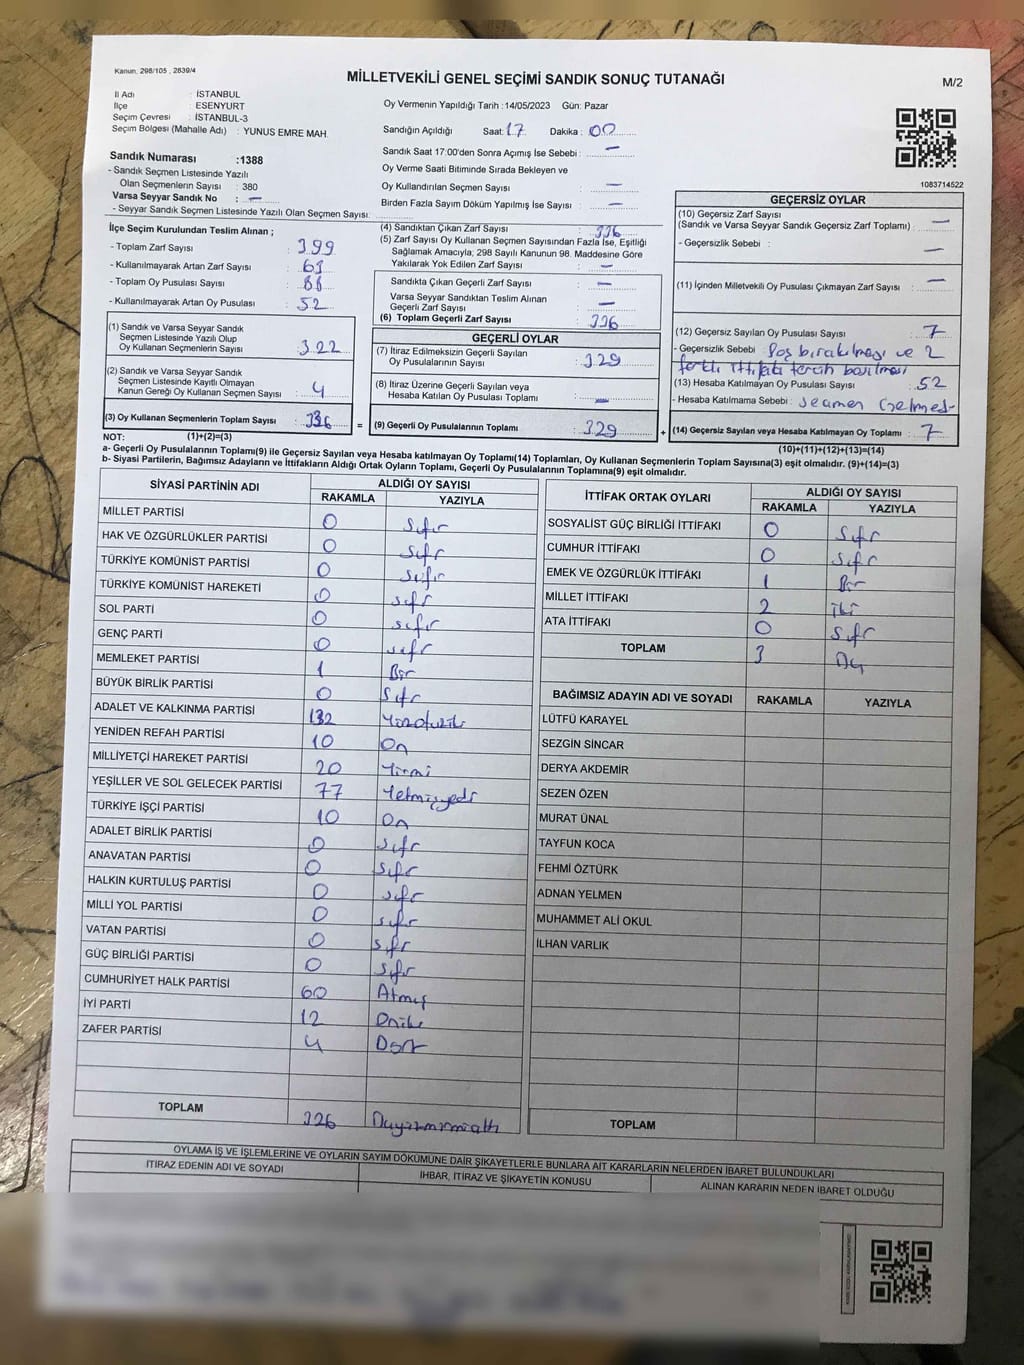 Kanun, 298/105 , 2839/4
MİLLETVEKİLİ GENEL SEÇİMİ SANDIK SONUÇ TUTANAĞI
M/2
İl Adı : İSTANBUL
İlçe : ESENYURT
Seçim Çevresi : İSTANBUL-3
Seçim Bölgesi (Mahalle Adı) : YUNUS EMRE MAH.
Sandık Numarası :1388
- Sandık Seçmen Listesinde Yazılı
Olan Seçmenlerin Sayısı : 380
Varsa Seyyar Sandık No : -
- Seyyar Sandık Seçmen Listesinde Yazılı Olan Seçmen Sayısı:
Oy Vermenin Yapıldığı Tarih :14/05/2023 Gün: Pazar
Sandığın Açıldığı Saat: 17 Dakika : 00
Sandık Saat 17:00'den Sonra Açımış İse Sebebi : -
Oy Verme Saati Bitiminde Sırada Bekleyen ve
Oy Kullandırılan Seçmen Sayısı : -
Birden Fazla Sayım Döküm Yapılmış İse Sayısı : -
1083714522
İlçe Seçim Kurulundan Teslim Alınan ;
- Toplam Zarf Sayısı : 399
- Kullanılmayarak Artan Zarf Sayısı : 63
- Toplam Oy Pusulası Sayısı :
- Kullanılmayarak Artan Oy Pusulası : 52
(1) Sandık ve Varsa Seyyar Sandık
Seçmen Listesinde Yazılı Olup
Oy Kullanan Seçmenlerin Sayısı : 322
(2) Sandık ve Varsa Seyyar Sandık
Seçmen Listesinde Kayıtlı Olmayan
Kanun Gereği Oy Kullanan Seçmen Sayısı : 4
(3) Oy Kullanan Seçmenlerin Toplam Sayısı : 336
(4) Sandıktan Çıkan Zarf Sayısı : 336
(5) Zarf Sayısı Oy Kullanan Seçmen Sayısından Fazla İse, Eşitliği
Sağlamak Amacıyla; 298 Sayılı Kanunun 98. Maddesine Göre
Yakılarak Yok Edilen Zarf Sayısı : -
Sandıkta Çıkan Geçerli Zarf Sayısı : -
Varsa Seyyar Sandıktan Teslim Alınan
Geçerli Zarf Sayısı : -
(6) Toplam Geçerli Zarf Sayısı : 336
GEÇERLİ OYLAR
(7) İtiraz Edilmeksizin Geçerli Sayılan
Oy Pusulalarının Sayısı : 329
(8) İtiraz Üzerine Geçerli Sayılan veya
Hesaba Katılan Oy Pusulası Toplamı : -
= (9) Geçerli Oy Pusulalarının Toplamı : 329
GEÇERSİZ OYLAR
(10) Geçersiz Zarf Sayısı
(Sandık ve Varsa Seyyar Sandık Geçersiz Zarf Toplamı) : -
- Geçersizlik Sebebi : -
(11) İçinden Milletvekili Oy Pusulası Çıkmayan Zarf Sayısı : -
(12) Geçersiz Sayılan Oy Pusulası Sayısı : 7
- Geçersizlik Sebebi : Boş bırakılması ve 2
farklı ittifaka tercih basılması
(13) Hesaba Katılmayan Oy Pusulası Sayısı : 52
- Hesaba Katılmama Sebebi : seçmen Gelmedi
+ (14) Geçersiz Sayılan veya Hesaba Katılmayan Oy Toplamı : 7
NOT: (1)+(2)=(3)
(10)+(11)+(12)+(13)=(14)
a- Geçerli Oy Pusulalarının Toplamı(9) ile Geçersiz Sayılan veya Hesaba katılmayan Oy Toplamı(14) Toplamları, Oy Kullanan Seçmenlerin Toplam Sayısına(3) eşit olmalıdır. (9)+(14)=(3)
b- Siyasi Partilerin, Bağımsız Adayların ve İttifakların Aldığı Ortak Oyların Toplamı, Geçerli Oy Pusulalarının Toplamına(9) eşit olmalıdır.
SİYASİ PARTİNİN ADI ALDIĞI OY SAYISI
RAKAMLA YAZIYLA
MİLLET PARTİSİ 0 Sıfır
HAK VE ÖZGÜRLÜKLER PARTİSİ 0 sıfır
TÜRKİYE KOMÜNİST PARTİSİ 0 sıfır
TÜRKİYE KOMÜNİST HAREKETİ 0 sıfır
SOL PARTİ 0 sıfır
GENÇ PARTİ 0 sıfır
MEMLEKET PARTİSİ 1 Bir
BÜYÜK BİRLİK PARTİSİ 0 Sıfır
ADALET VE KALKINMA PARTİSİ 132 Yüzotuziki
YENİDEN REFAH PARTİSİ 10 On
MİLLİYETÇİ HAREKET PARTİSİ 20 Yirmi
YEŞİLLER VE SOL GELECEK PARTİSİ 77 Yetmişyedi
TÜRKİYE İŞÇİ PARTİSİ 10 On
ADALET BİRLİK PARTİSİ 0 sıfır
ANAVATAN PARTİSİ 0 sıfır
HALKIN KURTULUŞ PARTİSİ 0 sıfır
MİLLİ YOL PARTİSİ 0 sıfır
VATAN PARTİSİ 0 sıfır
GÜÇ BİRLİĞİ PARTİSİ 0 sıfır
CUMHURİYET HALK PARTİSİ 60 Atmış
İYİ PARTİ 12 Oniki
ZAFER PARTİSİ 4 Dört
TOPLAM 326
İTTİFAK ORTAK OYLARI ALDIĞI OY SAYISI
RAKAMLA YAZIYLA
SOSYALİST GÜÇ BİRLİĞİ İTTİFAKI 0 Sıfır
CUMHUR İTTİFAKI 0 Sıfır
EMEK VE ÖZGÜRLÜK İTTİFAKI 1 Bir
MİLLET İTTİFAKI 2 İki
ATA İTTİFAKI 0 Sıfır
TOPLAM 3 Üç
BAĞIMSIZ ADAYIN ADI VE SOYADI RAKAMLA YAZIYLA
LÜTFÜ KARAYEL
SEZGİN SİNCAR
DERYA AKDEMİR
SEZEN ÖZEN
MURAT ÜNAL
TAYFUN KOCA
FEHMİ ÖZTÜRK
ADNAN YELMEN
MUHAMMET ALİ OKUL
İLHAN VARLIK
TOPLAM
OYLAMA İŞ VE İŞLEMLERİNE VE OYLARIN SAYIM DÖKÜMÜNE DAİR ŞİKAYETLERLE BUNLARA AİT KARARLARIN NELERDEN İBARET BULUNDUKLARI
İTİRAZ EDENİN ADI VE SOYADI İHBAR, İTİRAZ VE ŞİKAYETİN KONUSU ALINAN KARARIN NEDEN İBARET OLDUĞU